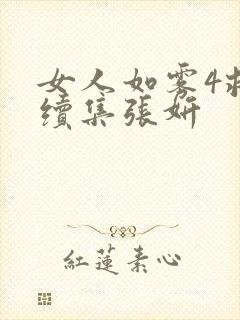 女人如雾4
续集張妍
紅蓮素心